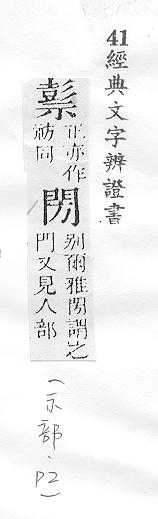 41經典文字辨證書
𥛱
正亦作
祊同
閍
別爾雅閍謂之
門又見人部
（示部．P2）